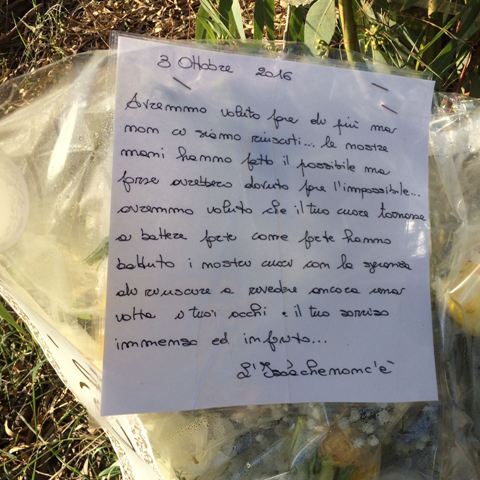 3 Ottobre 2016
Avremmo voluto fare di più ma
non ci siamo riusciti... le nostre
mani hanno fatto il possibile ma
forse avrebbero dovuto fare l'impossibile...
avremmo voluto che il tuo cuore tornasse
a battere forte come forte hanno
battuto i nostri cuori con la speranza
di riuscire a rivedere ancora una
volta i tuoi occhi e il tuo sorriso
immenso ed infinito...
L'Isolachenonc'è